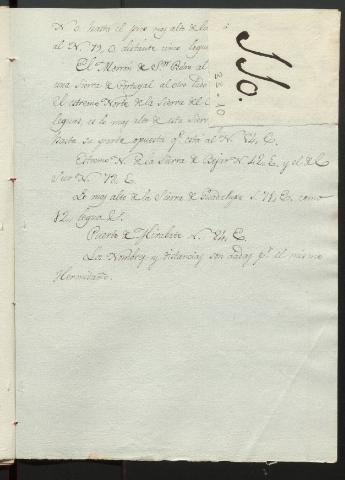 N. O. hasta el pico mas alto de la
al N. 79, O. distante cinco legua
El Morron de Sn. Pedro al
una Sierra de Portugal al otro lado
El extremo Norte de la Sierra de
leguas, es lo mas alto de esta Sierr
hasta su parte opuesta qe. está al N. 24, E.
Extremo N. de la Sierra de Bejar N. 42, E. y el de el
Sur N. 78, E.
Lo mas alto de la Sierra de Guadalupe S. 71, E. como
12 leguas.
Puerto de Mirabete N. 84, E.
Los Nombres y distancias son dadas pr. el mismo
Hermitaño.
33-10